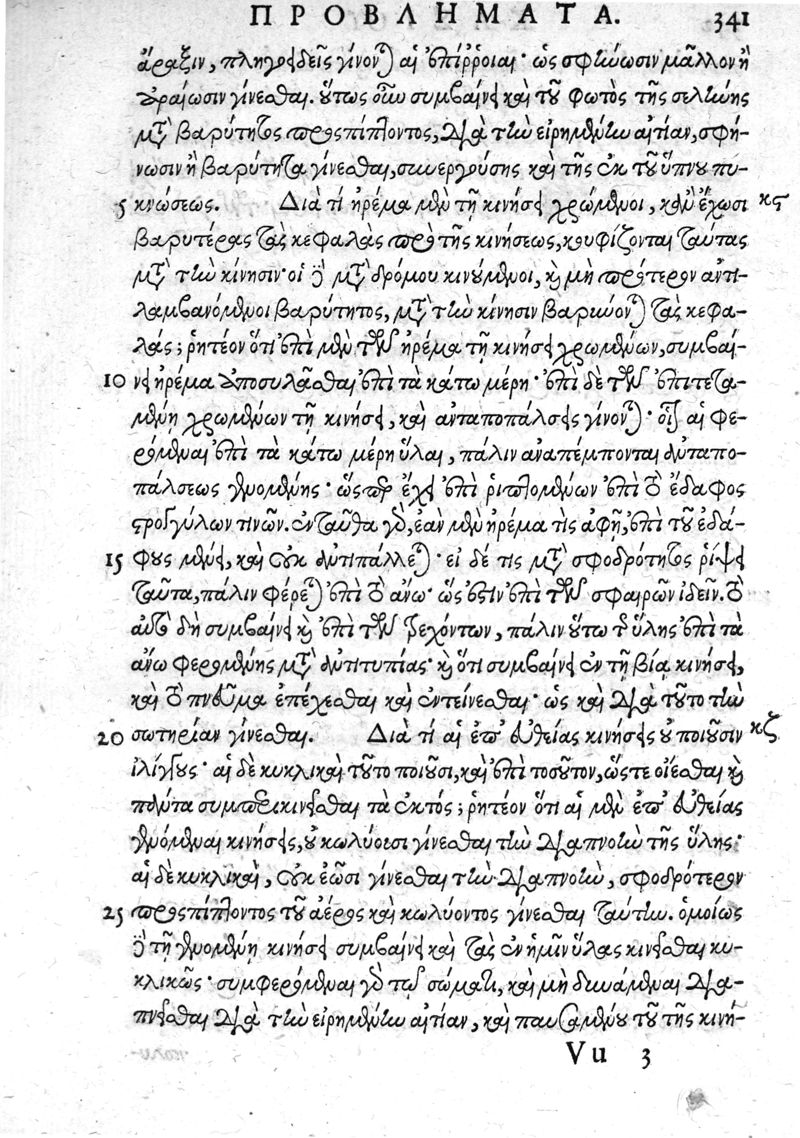 ΠΡΟΒΛΗΜΑΤΑ. 341
άραξιν, πληγοειδεῖς γίνονται αἱ ἐπίῤῥοιαι· ὡς σφήνωσιν μᾶλλον ἢ
ἀραίωσιν γίνεσθαι. οὕτως οὖν συμβαίνει καὶ τοῦ φωτὸς τῆς σελήνης
μετὰ βαρύτητος προσπίπτοντος, διὰ τὴν εἰρημένην αἰτίαν, σφή-
νωσιν ἢ βαρύτητα γίνεσθαι, συνεργούσης καὶ τῆς ἐκ τοῦ ὕπνου πυ-
5 κνώσεως. Διὰ τί ἠρέμα μὲν τῇ κινήσει χρώμενοι, κἂν ἔχωσι κϛ
βαρυτέρας τὰς κεφαλὰς πρὸ τῆς κινήσεως, κουφίζονται ταύτας
μετὰ τὴν κίνησιν· οἱ δὲ μετὰ δρόμου κινούμενοι, καὶ μὴ πρότερον ἀντι-
λαμβανόμενοι βαρύτητος, μετὰ τὴν κίνησιν βαρύνονται τὰς κεφα-
λάς; ῥητέον ὅτι ἐπὶ μὲν τῶν ἠρέμα τῇ κινήσει χρωμένων, συμβαί-
10 νει ἠρέμα ἀποσυλᾶσθαι ἐπὶ τὰ κάτω μέρη· ἐπὶ δὲ τῶν ἐπιτετα-
μένῃ χρωμένων τῇ κινήσει, καὶ ἀνταποπάλσεις γίνονται· αἱ φε-
ρόμεναι ἐπὶ τὰ κάτω μέρη ὗλαι, πάλιν ἀναπέμπονται ἀνταπο-
πάλσεως γενομένης· ὥσπερ ἔχει ἐπὶ ῥιπτομένων ἐπὶ τὸ ἔδαφος
στρογγύλων τινῶν. ἐνταῦθα γὰρ, ἐὰν μὲν ἠρέμα τὶς ἀφῇ, ἐπὶ τοῦ ἐδά-
15 φους μένει, καὶ οὐκ ἀντιπάλλεται· εἰ δέ τις μετὰ σφοδρότητος ῥίψει
ταῦτα, πάλιν φέρεται ἐπὶ τὸ ἄνω· ὡς ἔστιν ἐπὶ τῶν σφαιρῶν ἰδεῖν. τὸ
αὐτὸ δὴ συμβαίνει καὶ ἐπὶ τῶν τρεχόντων, πάλιν οὕτω τῆς ὕλης ἐπὶ τὰ
ἄνω φερομένης μετὰ ἀντιτυπίας· καὶ ὅτι συμβαίνει ἐν τῇ βίᾳ κινήσει,
καὶ τὸ πνεῦμα ἐπέχεσθαι καὶ ἐντείνεσθαι· ὡς καὶ διὰ τοῦτο τὴν
20 σωτηρίαν γίνεσθαι. Διὰ τί αἱ ἐπ' εὐθείας κινήσεις οὐ ποιοῦσιν κζ
ἰλίγγους· αἱ δὲ κυκλικαὶ τοῦτο ποιοῦσι, καὶ ἐπὶ τοσοῦτον, ὥστε οἴεσθαι καὶ
πάντα συμπερικινεῖσθαι τὰ ἐκτός; ῥητέον ὅτι αἱ μὲν ἐπ' εὐθείας
γενόμεναι κινήσεις, οὐ κωλύουσι γίνεσθαι τὴν διαπνοὴν τῆς ὕλης·
αἱ δὲ κυκλικαὶ, οὐκ ἐῶσι γίνεσθαι τὴν διαπνοὴν, σφοδρότερον
25 προσπίπτοντος τοῦ ἀέρος καὶ κωλύοντος γίνεσθαι ταύτην. ὁμοίως
δὲ τῇ γενομένῃ κινήσει συμβαίνει καὶ τὰς ἐν ἡμῖν ὕλας κινεῖσθαι κυ-
κλικῶς· συμφερόμεναι γὰρ τῷ σώματι, καὶ μὴ δυνάμεναι δια-
πνεῖσθαι διὰ τὴν εἰρημένην αἰτίαν, καὶ παυσαμένου τοῦ τῆς κινή-
Vu 3